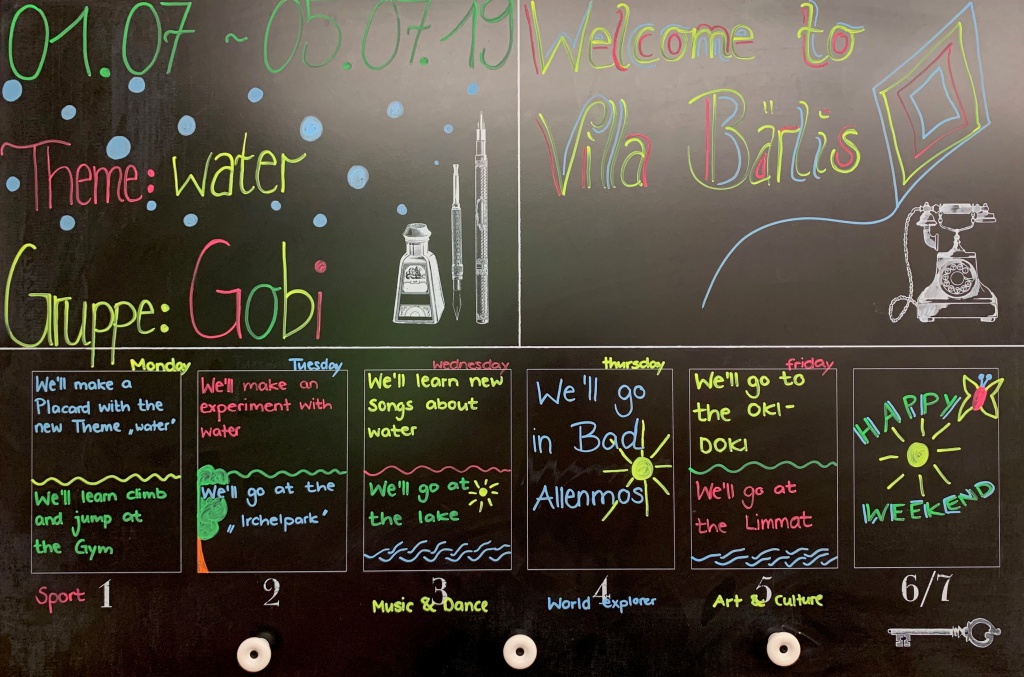 01.07 ~ 05.07.19
Theme: water
Gruppe: Gobi
Welcome to
Villa Bärlis
Monday
We'll make a
Placard with the
new Theme „water"
We'll learn climb
and jump at
the Gym
Sport 1
Tuesday
We'll make an
experiment with
water
We'll go at the
„Irchelpark"
2
wednesday
We'll learn new
songs about
water
We'll go at
the lake
3
Music & Dance
thursday
We'll go
in Bad
Allenmos
4
World explorer
friday
We'll go to
the OKI-
DOKI
We'll go at
the Limmat
5
Art & Culture
HAPPY
WEEKEND
6/7